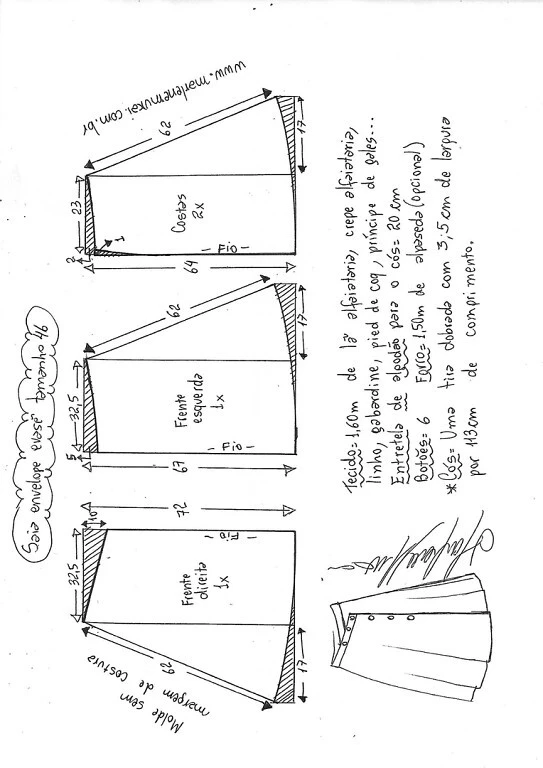 Saia envelope evasê tamanho 46
www.marlenemukai.com.br
Molde sem
margem de costura
10
32,5
72
Fio
Frente
direita
1x
62
17
5
32,5
67
Fio
Frente
esquerda
1x
62
17
2
23
1
64
Fio
Costas
2x
62
17
Tecido= 1,60m de lã alfaiataria, crepe alfaiataria,
linho, gabardine, pied de coq, príncipe de gales...
Entretela de algodão para o cós= 20 cm
Botões= 6 Forro= 1,50m de alpaseda (opcional)
* Cós= Uma tira dobrada com 3,5 cm de largura
por 113cm de comprimento.